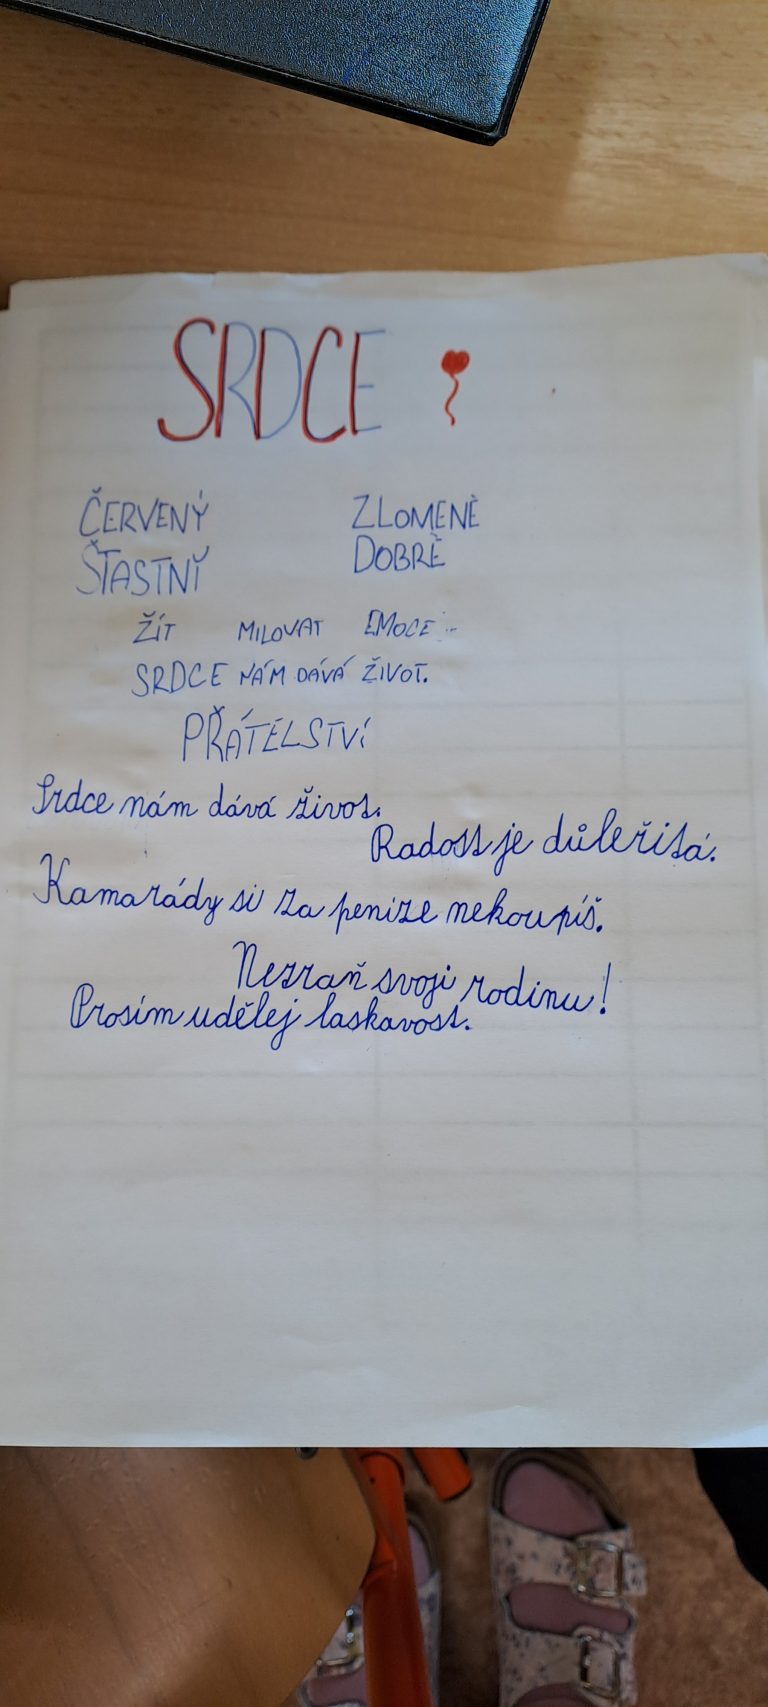 SRDCE
ČERVENÝ ZLOMENÉ
ŠŤASTNÝ DOBRÉ
ŽÍT MILOVAT EMOCE...
SRDCE NÁM DÁVÁ ŽIVOT.
PŘÁTELSTVÍ
Srdce nám dává život.
Radost je důležitá.
Kamarády si za peníze nekoupíš.
Nezraň svoji rodinu!
Prosím udělej laskavost.